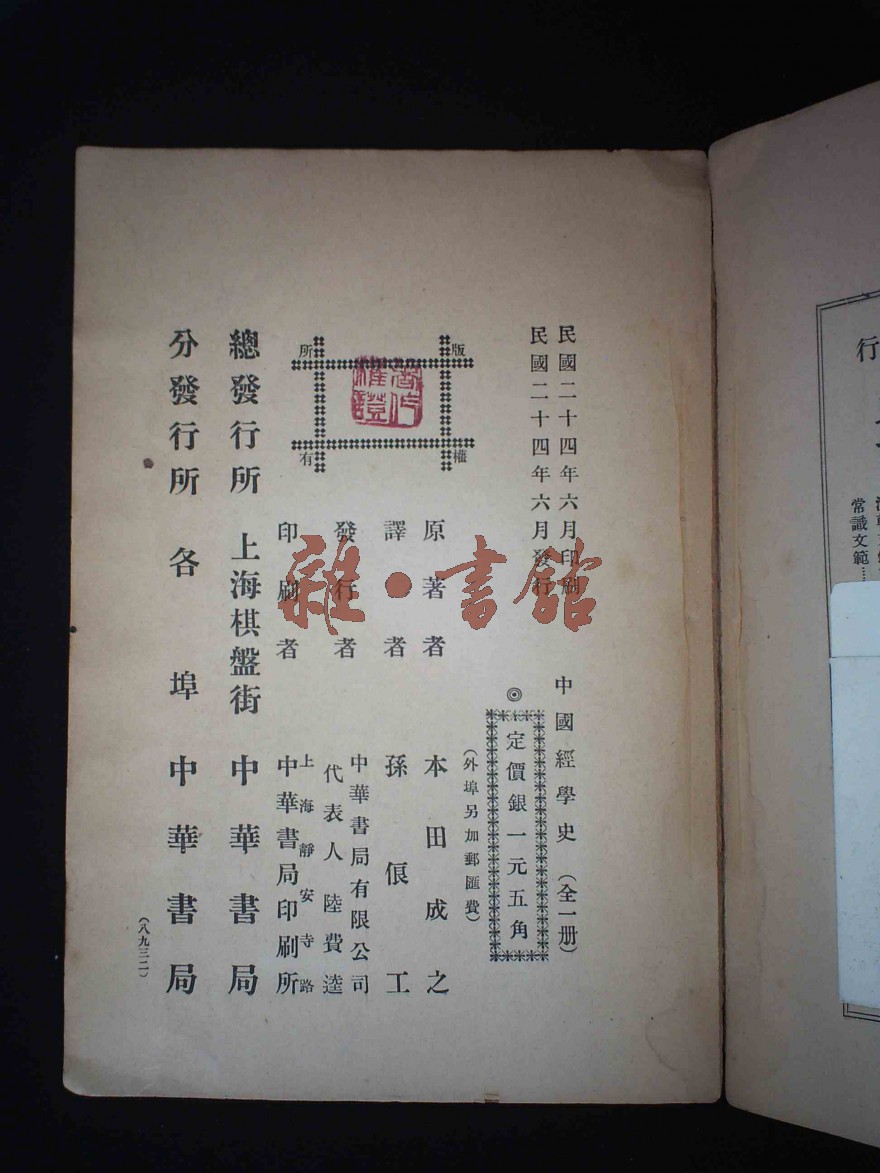 民國二十四年六月印刷
民國二十四年六月發行
中國經學史（全一册）
◎定價銀一元五角
（外埠另加郵匯費）
原著者 本田成之
譯者 孫俍工
發行者 中華書局有限公司
代表人 陸費逵
印刷者 上海靜安寺路
中華書局印刷所
版權所有
總發行所 上海棋盤街 中華書局
分發行所 各埠 中華書局
（八九三二）
雜·書館
行
常識文範